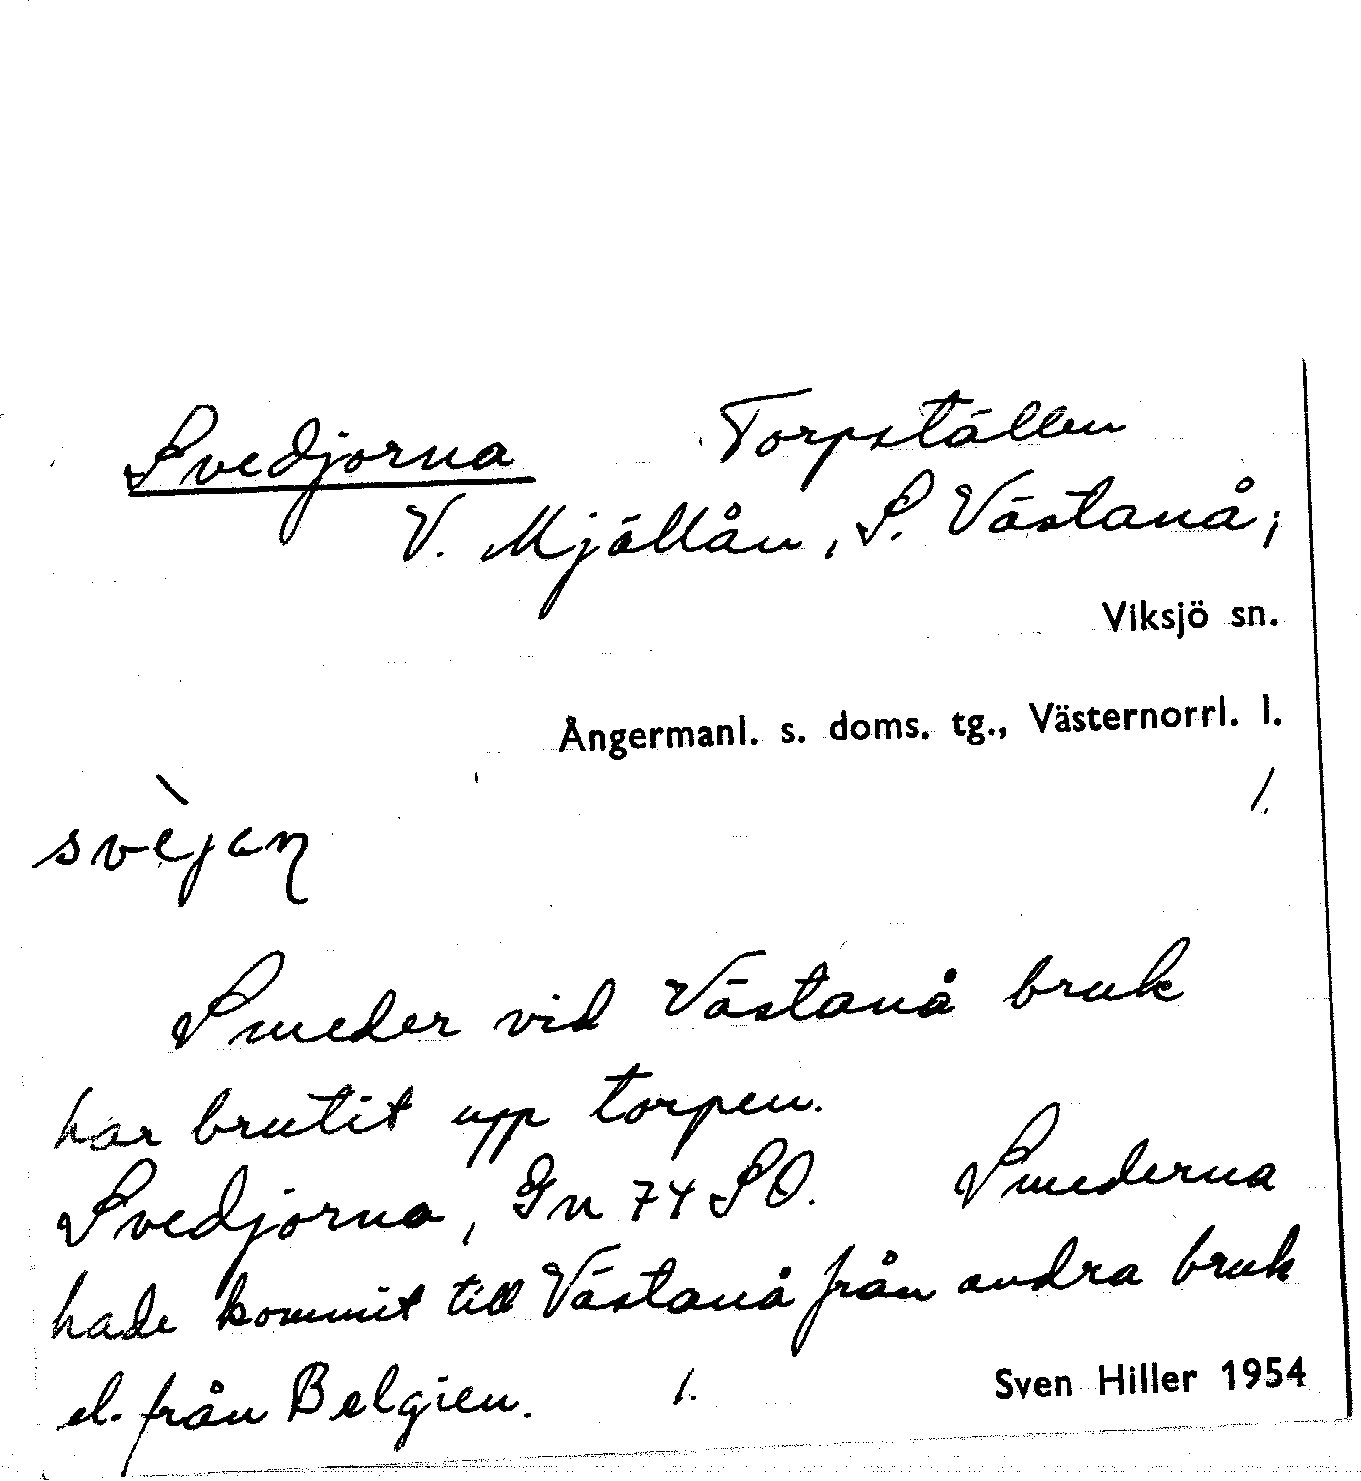 Svedjorna Torpställen
V. Mjällån, S. Västanå;
Viksjö sn.
Ångermanl. s. doms. tg., Västernorrl. l.
1.
Smeder vid Västanå bruk
har brutit upp torpen.
Svedjorna, Gn 74 SO. Smederna
hade kommit till Västanå från andra bruk
el. från Belgien. 1. Sven Hiller 1954